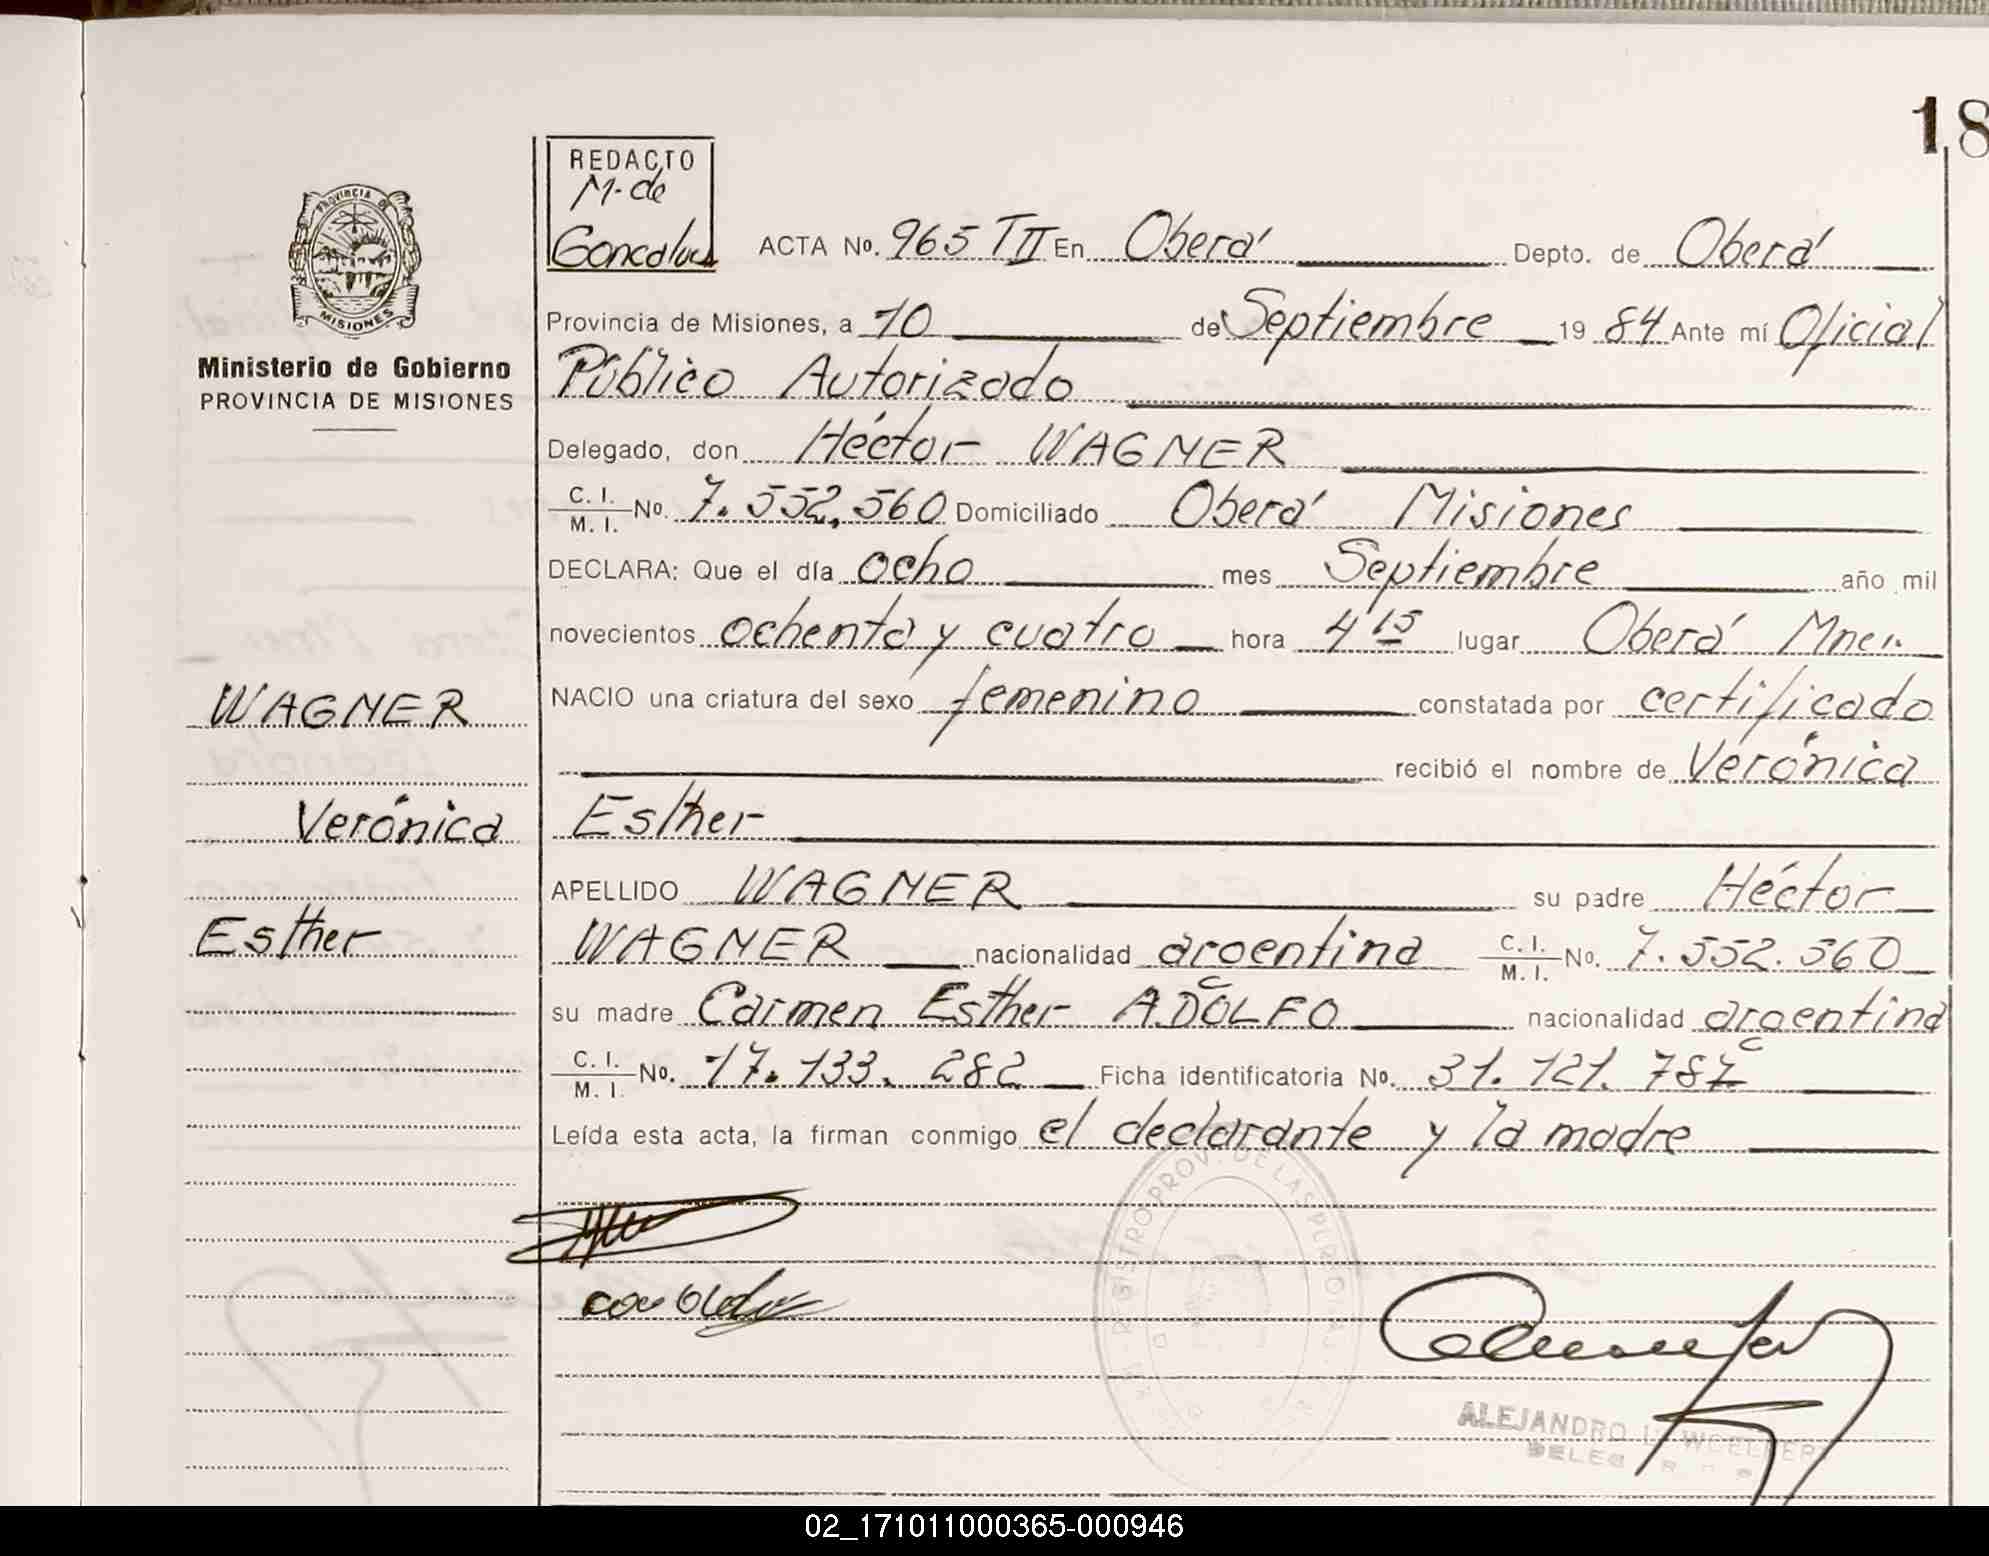 18
REDACTO
M. de
Goncalves
PROVINCIA DE
MISIONES
Ministerio de Gobierno
PROVINCIA DE MISIONES
ACTA No. 965 T II En Oberá Depto. de Oberá
Provincia de Misiones, a 10 de Septiembre 19 84 Ante mí Oficial
Público Autorizado
Delegado, don Héctor WAGNER
C. I. / M. I. No. 7.552.560 Domiciliado Oberá Misiones
DECLARA: Que el día ocho mes Septiembre año mil
novecientos ochenta y cuatro hora 4 15 lugar Oberá Mnes.
NACIO una criatura del sexo femenino constatada por certificado
recibió el nombre de Verónica
Esther
APELLIDO WAGNER su padre Héctor
WAGNER nacionalidad argentina C. I. / M. I. No. 7.552.560
su madre Carmen Esther ADOLFO nacionalidad argentina
C. I. / M. I. No. 17.133.282 Ficha identificatoria No. 31.121.787
Leída esta acta, la firman conmigo el declarante y la madre
WAGNER
Verónica
Esther
REGISTRO PROV. DE LAS PERSONAS
ALEJANDRO
02_171011000365-000946